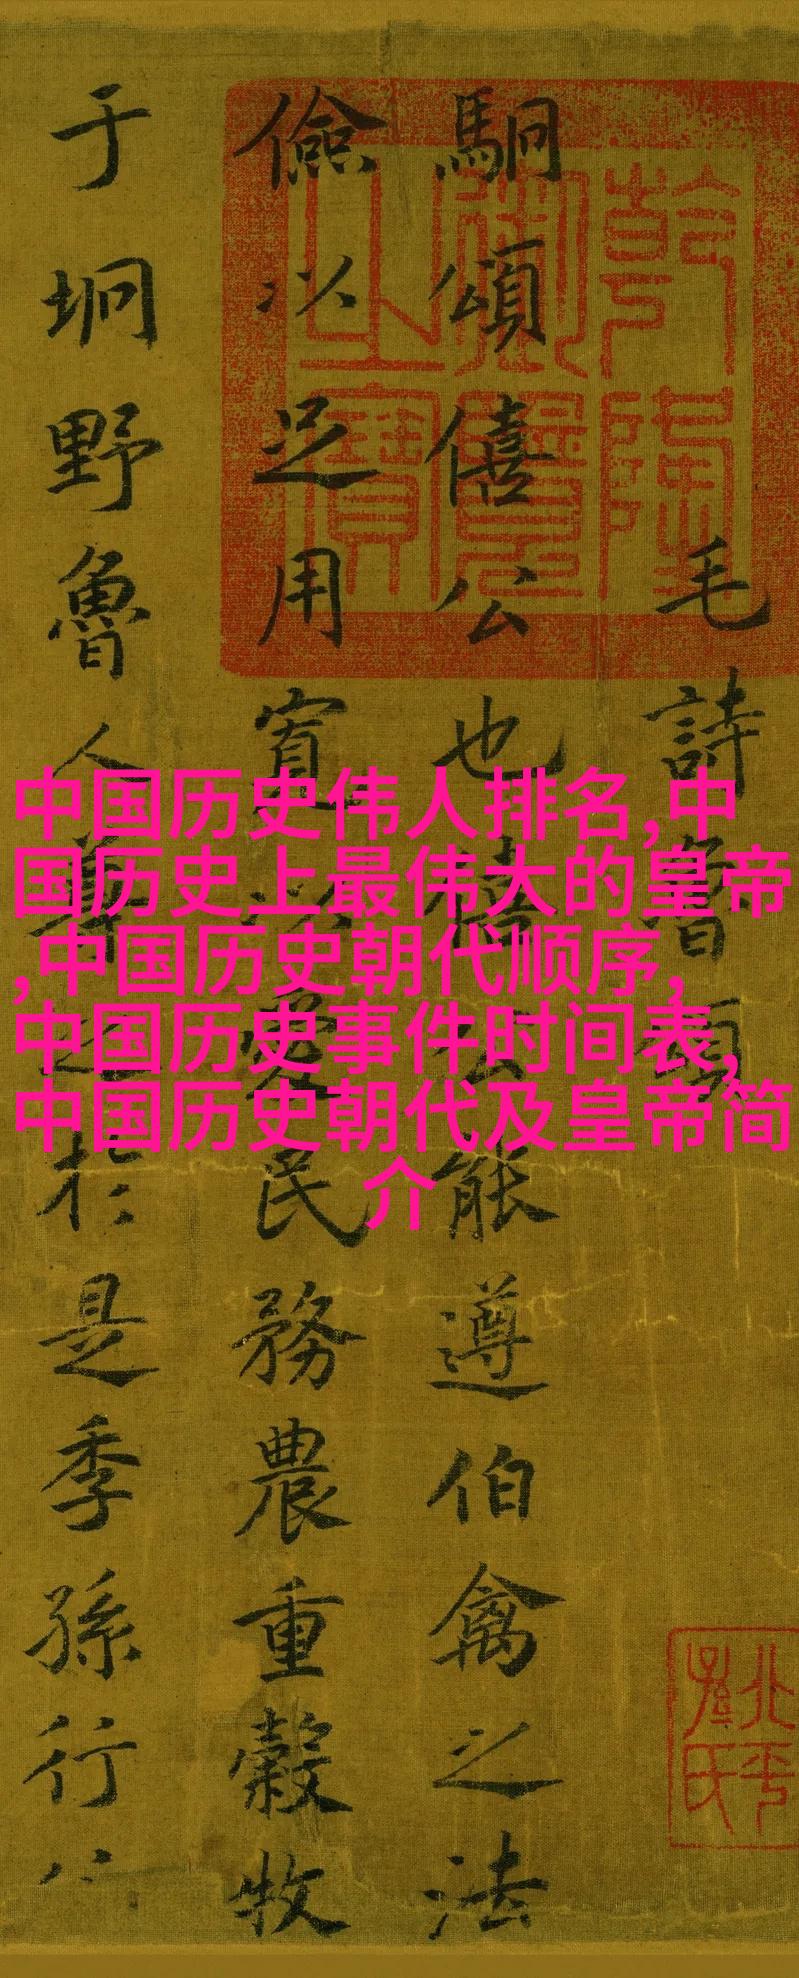 乾隆
御覽
之寶
毛詩魯頌
駉頌僖公也僖公能遵伯禽之法
儉以足用寬以愛民務農重穀牧
于坰野魯人尊之於是季孫行
中国历史伟人排名,中
国历史上最伟大的皇帝
,中国历史朝代顺序,
中国历史事件时间表,
中国历史朝代及皇帝简
介
北平
孫氏